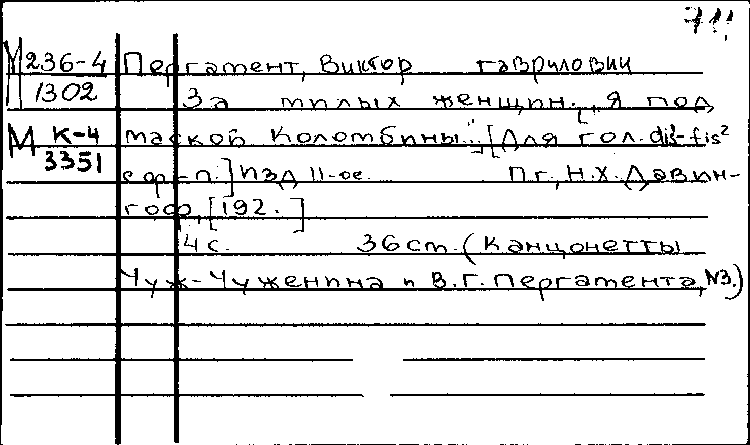 711
М 236-4 Пергамент, Виктор гавриловии
1302 За милых женщин. "Я под
М К-4 маской Коломбины..." [Для гол. dis¹-fis²
3351 с фп-п.] Изд 11-ое. Пг., Н.Х. Давин-
гоф, [192. ]
4с. 36 cm. (Канцонетты
Чуж-Чуженина и В.Г. Пергамента, N3.)